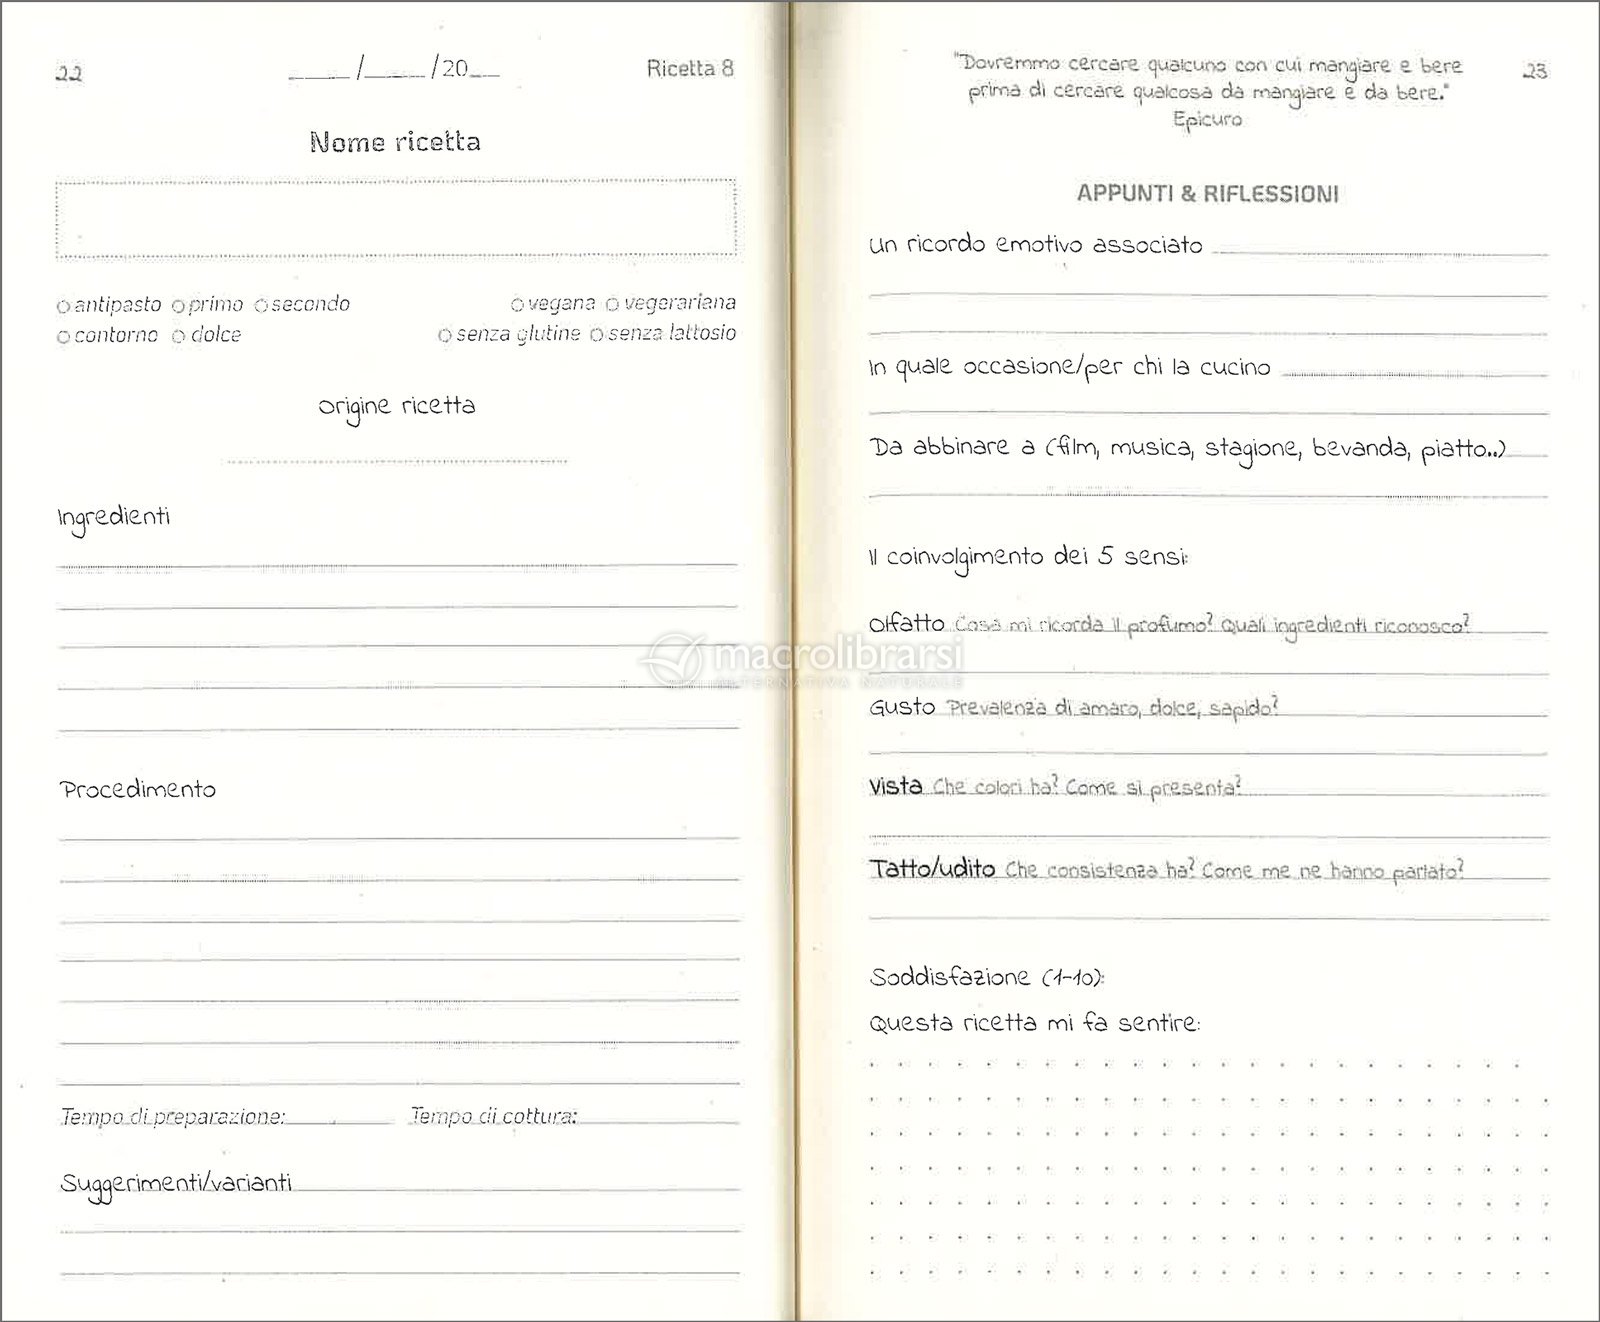 22
___/___/20__
Ricetta 8
Nome ricetta
antipasto primo secondo
contorno dolce
vegana vegerariana
senza glutine senza lattosio
Origine ricetta
Ingredienti
Procedimento
Tempo di preparazione:
Tempo di cottura:
Suggerimenti/varianti
"Dovremmo cercare qualcuno con cui mangiare e bere
prima di cercare qualcosa da mangiare e da bere."
Epicuro
23
APPUNTI & RIFLESSIONI
Un ricordo emotivo associato
In quale occasione/per chi la cucino
Da abbinare a (film, musica, stagione, bevanda, piatto..)
Il coinvolgimento dei 5 sensi:
Olfatto Cosa mi ricorda il profumo? Quali ingredienti riconosco?
Gusto Prevalenza di amaro, dolce, sapido?
Vista Che colori ha? Come si presenta?
Tatto/udito Che consistenza ha? Come me ne hanno parlato?
Soddisfazione (1-10):
Questa ricetta mi fa sentire:
macrolibrarsi
ALTERNATIVA NATURALE